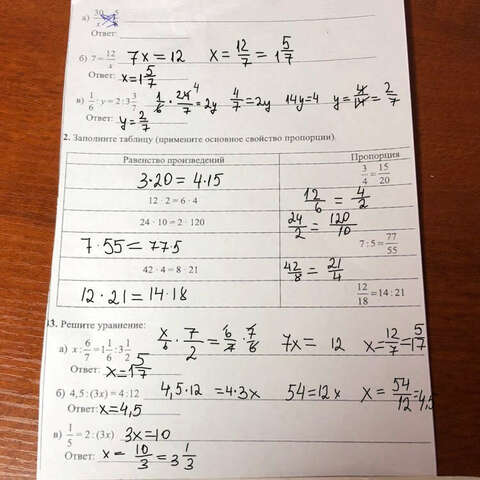 а) 30/x = 5
Ответ:
б) 7 = 12/x 7x = 12 x = 12/7 = 1 5/7
Ответ: x = 1 5/7
в) 1/6 · y = 2 : 3 3/7 1/6 · 24 4/7 = 2y 4/7 = 2y 14y = 4 y = 4/14 = 2/7
Ответ: y = 2/7
2. Заполните таблицу (примените основное свойство пропорции).
Равенство произведений Пропорция
3·20 = 4·15 3/4 = 15/20
12 · 2 = 6 · 4 12/6 = 4/2
24 · 10 = 2 · 120 24/2 = 120/10
7·55 = 77·5 7 : 5 = 77/55
42 · 4 = 8 · 21 42/8 = 21/4
12·21 = 14·18 12/18 = 14 : 21
13. Решите уравнение:
а) x : 6/7 = 1 1/6 : 3 1/2 x/6 · 7/2 = 6/7 · 7/6 7x = 12 x = 12/7 = 1 5/7
Ответ: x = 1 5/7
б) 4,5 : (3x) = 4 : 12 4,5·12 = 4·3x 54 = 12x x = 54/12 = 4,5
Ответ: x = 4,5
в) 1/5 = 2 : (3x) 3x = 10
Ответ: x = 10/3 = 3 1/3